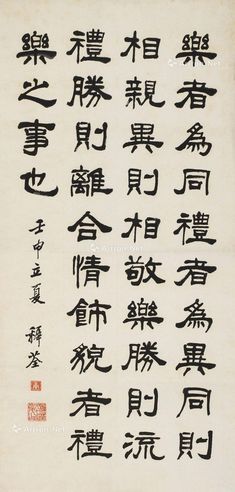 樂者為同禮者為異同則
相親異則相敬樂勝則流
禮勝則離合情飾貌者禮
樂之事也
壬申立夏 稺荃